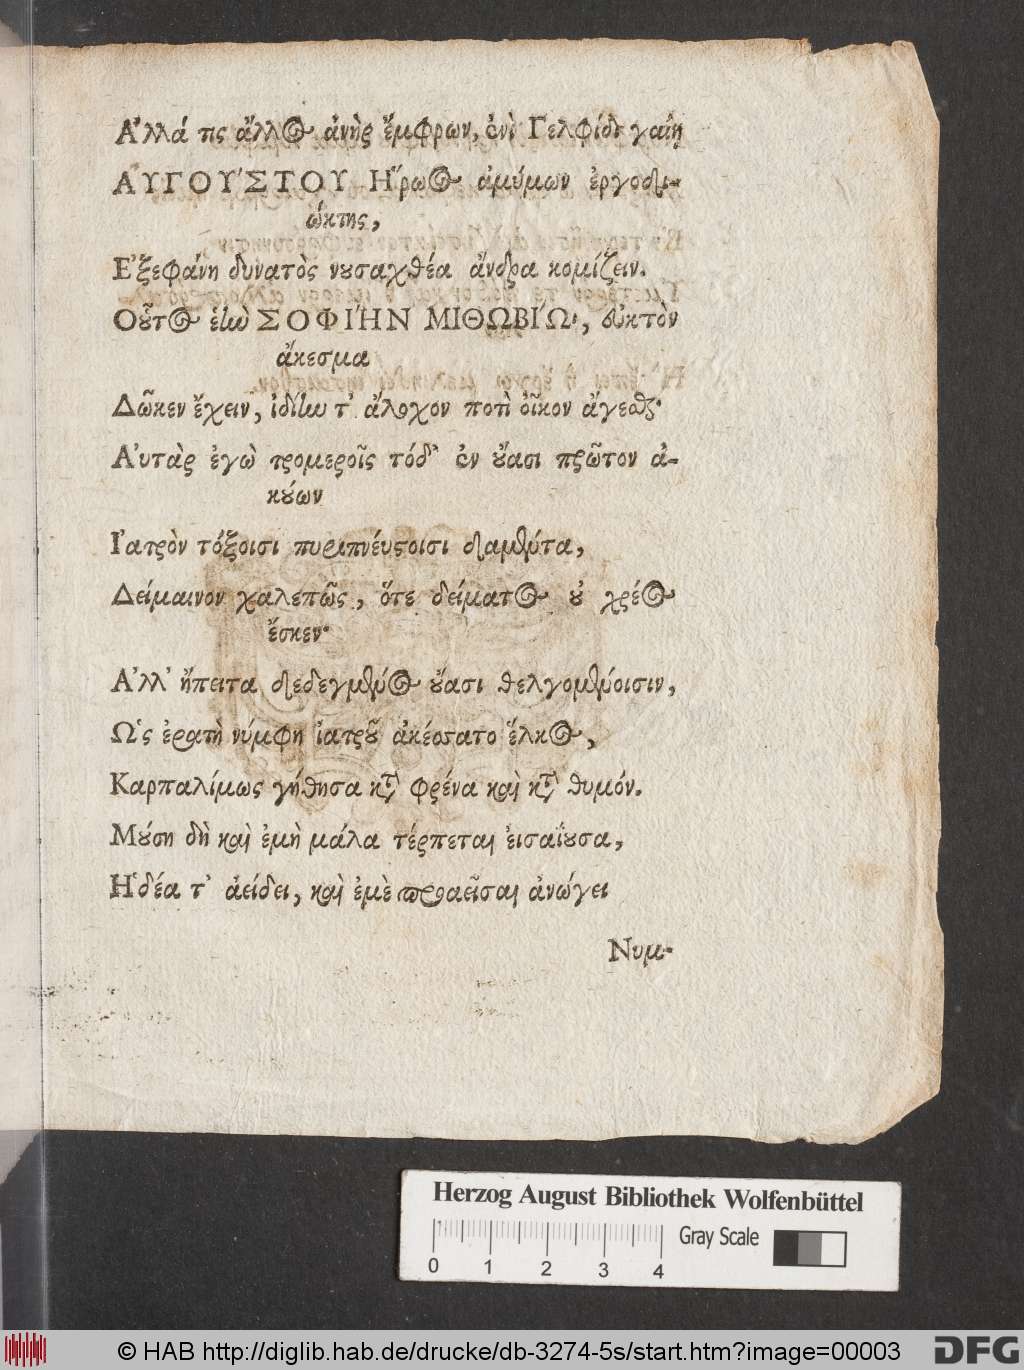 Ἀλλά τις ἄλλος ἀνὴρ ἔμφρων, ἐνὶ Γελφίδι γαίῃ
ΑΥΓΟΥΣΤΟΥ Ἥρως ἀμύμων ἐργοδι-
ώκτης,
Ἐξεφάνη δυνατὸς νουσαχθέα ἄνδρα κομίζειν.
Οὗτος ἑὴν ΣΟΦΙΗΝ ΜΙΘΩΒΙΩ, οἰκτὸν
ἄκεσμα
Δῶκεν ἔχειν, ἰδίην τ' ἄλοχον ποτὶ οἶκον ἄγεσθαι·
Αὐτὰρ ἐγὼ τρομεροῖς τόδ' ἐν οὔασι πρῶτον ἀ-
κούων
Ἰατρὸν τόξοισι πυριπνεύστοισι διαμέντα,
Δείμαινον χαλεπῶς, ὅτε δείματος οὐ χρέος
ἔσκεν·
Ἀλλ' ἤπειτα διεδεγμένος οὔασι θελγομένοισιν,
Ὡς ἐρατὴ νύμφη ἰατροῦ ἀκέσσατο ἕλκος,
Καρπαλίμως γήθησα κατὰ φρένα καὶ κατὰ θυμόν.
Μούση δὴ καὶ ἐμὴ μάλα τέρπεται εἰσαΐουσα,
Ἡδέα τ' ἀείδει, καὶ ἐμὲ παραεῖσαι ἀνώγει
Νυμ-
Herzog August Bibliothek Wolfenbüttel
Gray Scale
0 1 2 3 4
© HAB http://diglib.hab.de/drucke/db-3274-5s/start.htm?image=00003
DFG